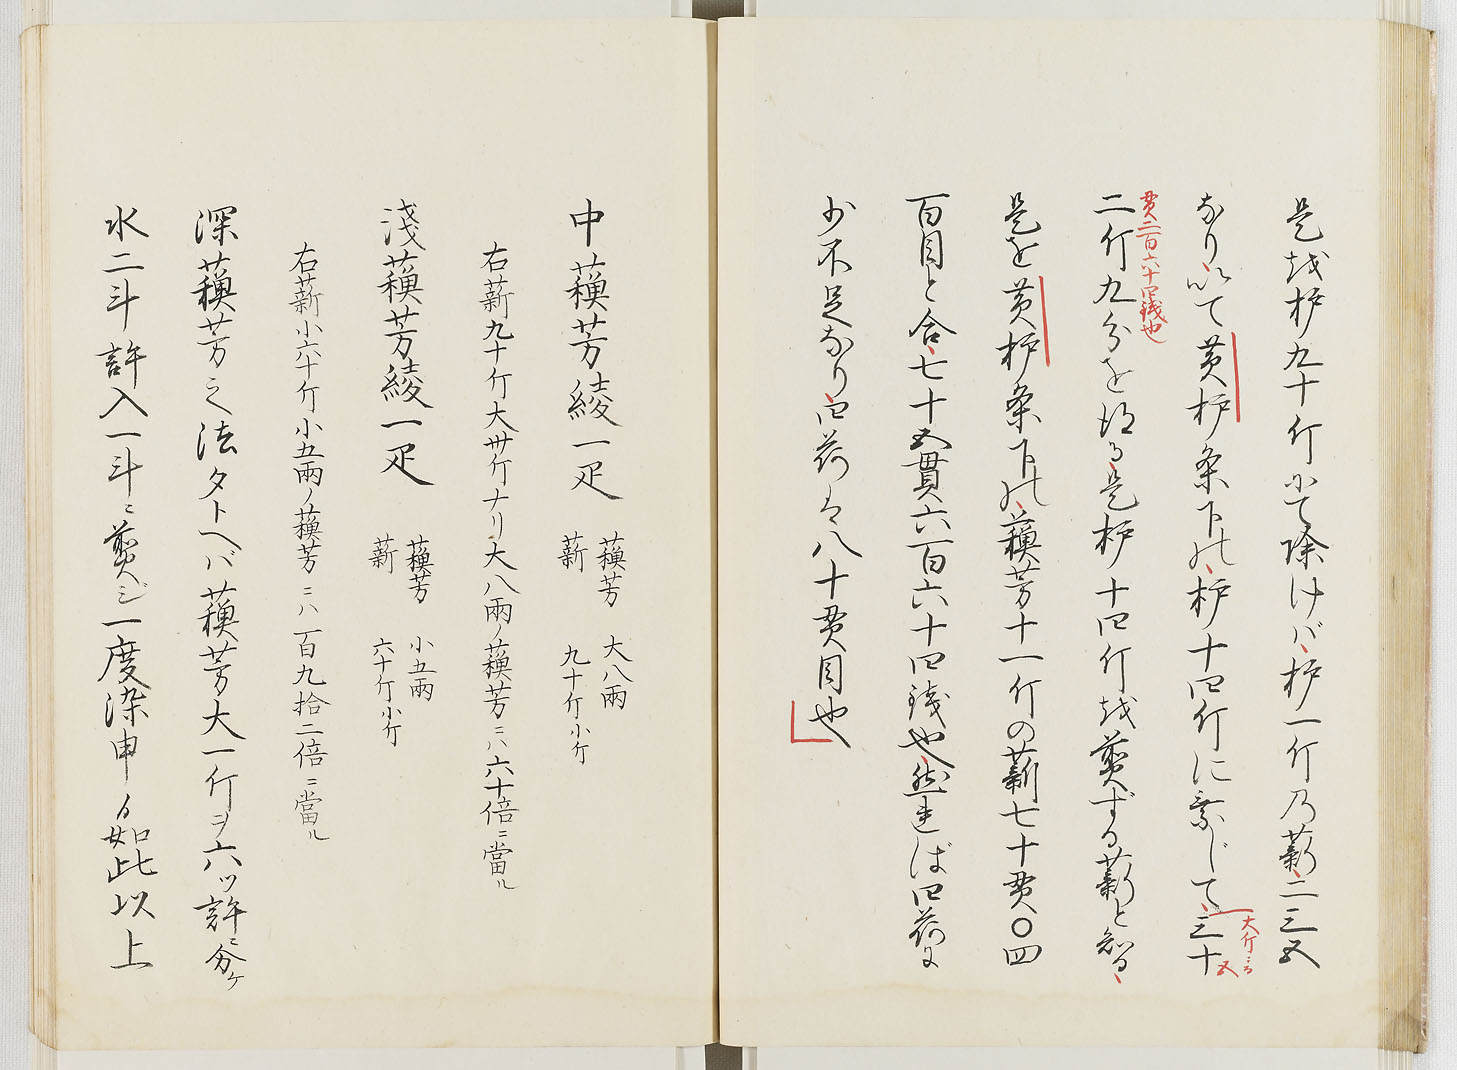 是越枦九十斤にて除けバ、枦一斤乃薪、二三五
なり、以て黄枦条下れ、枦十四斤に乗じて、三十
大斤ニる 五
貫二百六十四銭也
二斤九分を得る、是枦十四斤越煎ずる薪と知る、
是を黄枦条下れ、蘓芳十一斤の薪七十貫〇四
百目と合、七十五貫六百六十四銭也、然連ば四荷に
少不足なり、四荷は八十貫目也
中蘓芳綾一疋 蘓芳 大八兩
薪 九十斤小斤
右薪九十斤大卅斤ナリ大八兩ノ蘓芳ニハ六十倍ニ當ル
淺蘓芳綾一疋 蘓芳 小五兩
薪 六十斤小斤
右薪小六十斤小五兩ノ蘓芳ニハ百九拾二倍ニ當ル
深蘓芳之法タトヘバ蘓芳大一斤ヲ六ツ許ニ分ケ
水二斗許入一斗ニ煎ジ一度染申候如此以上